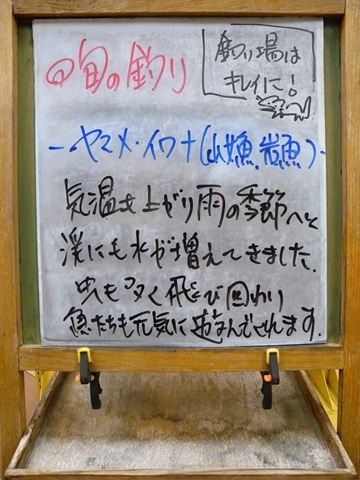 旬の釣り
釣り場は
キレイに!
-ヤマメ・イワナ(山女魚.岩魚)-
気温も上がり雨の季節へと
渓にも水が増えてきました.
虫も多く飛び回わり
魚たちも元気に遊んでくれます.